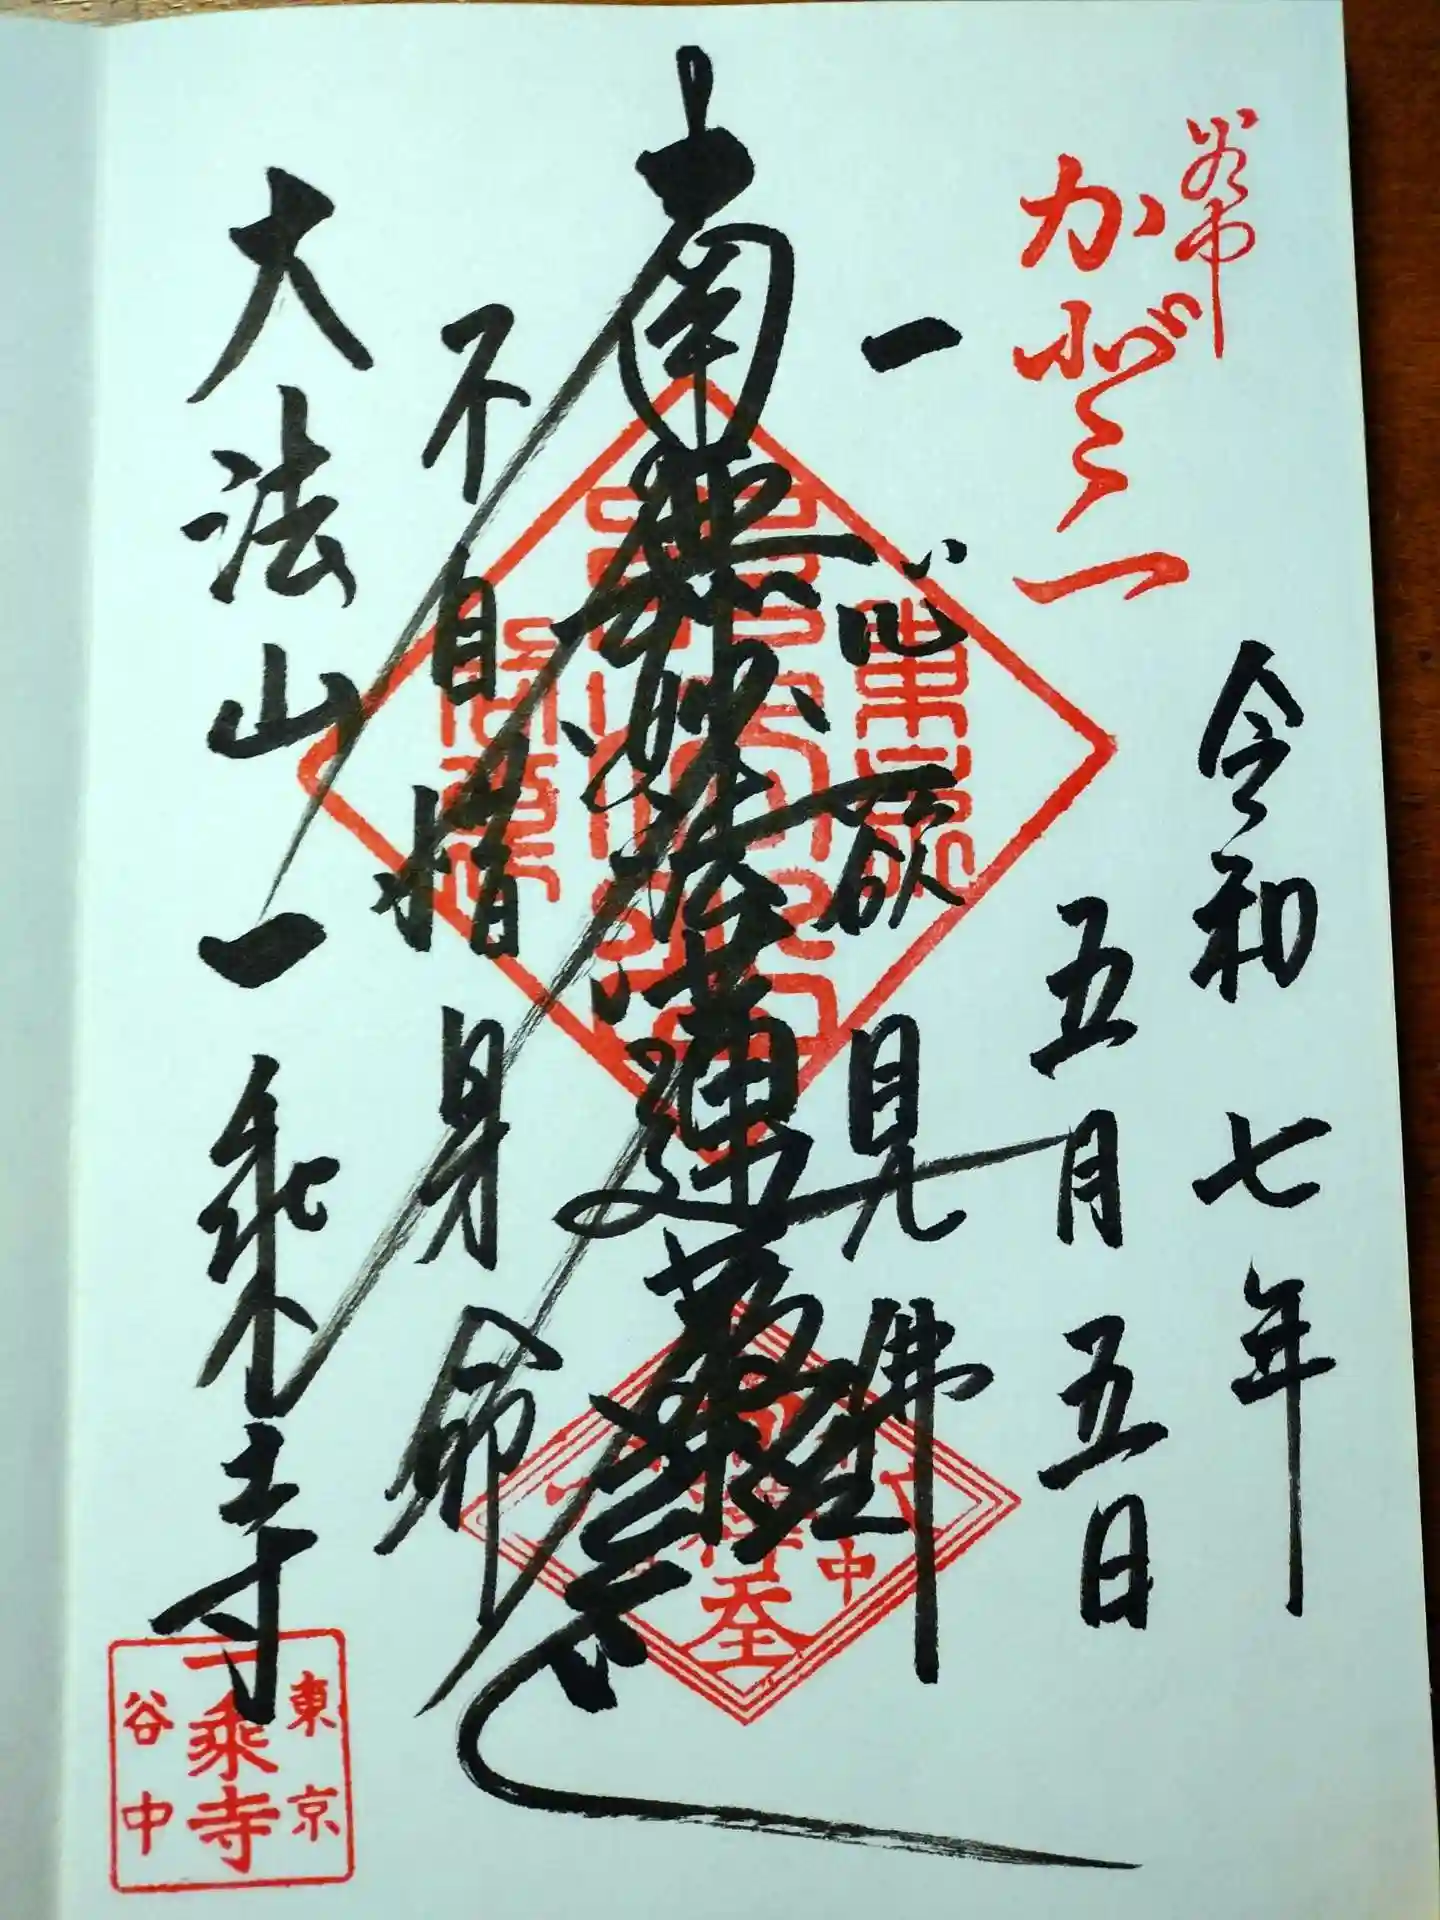 谷中
令和七年
五月五日
一心欲見佛
南無妙法蓮華経
不自惜身命
大法山一乗寺
東京
一乗寺
谷中